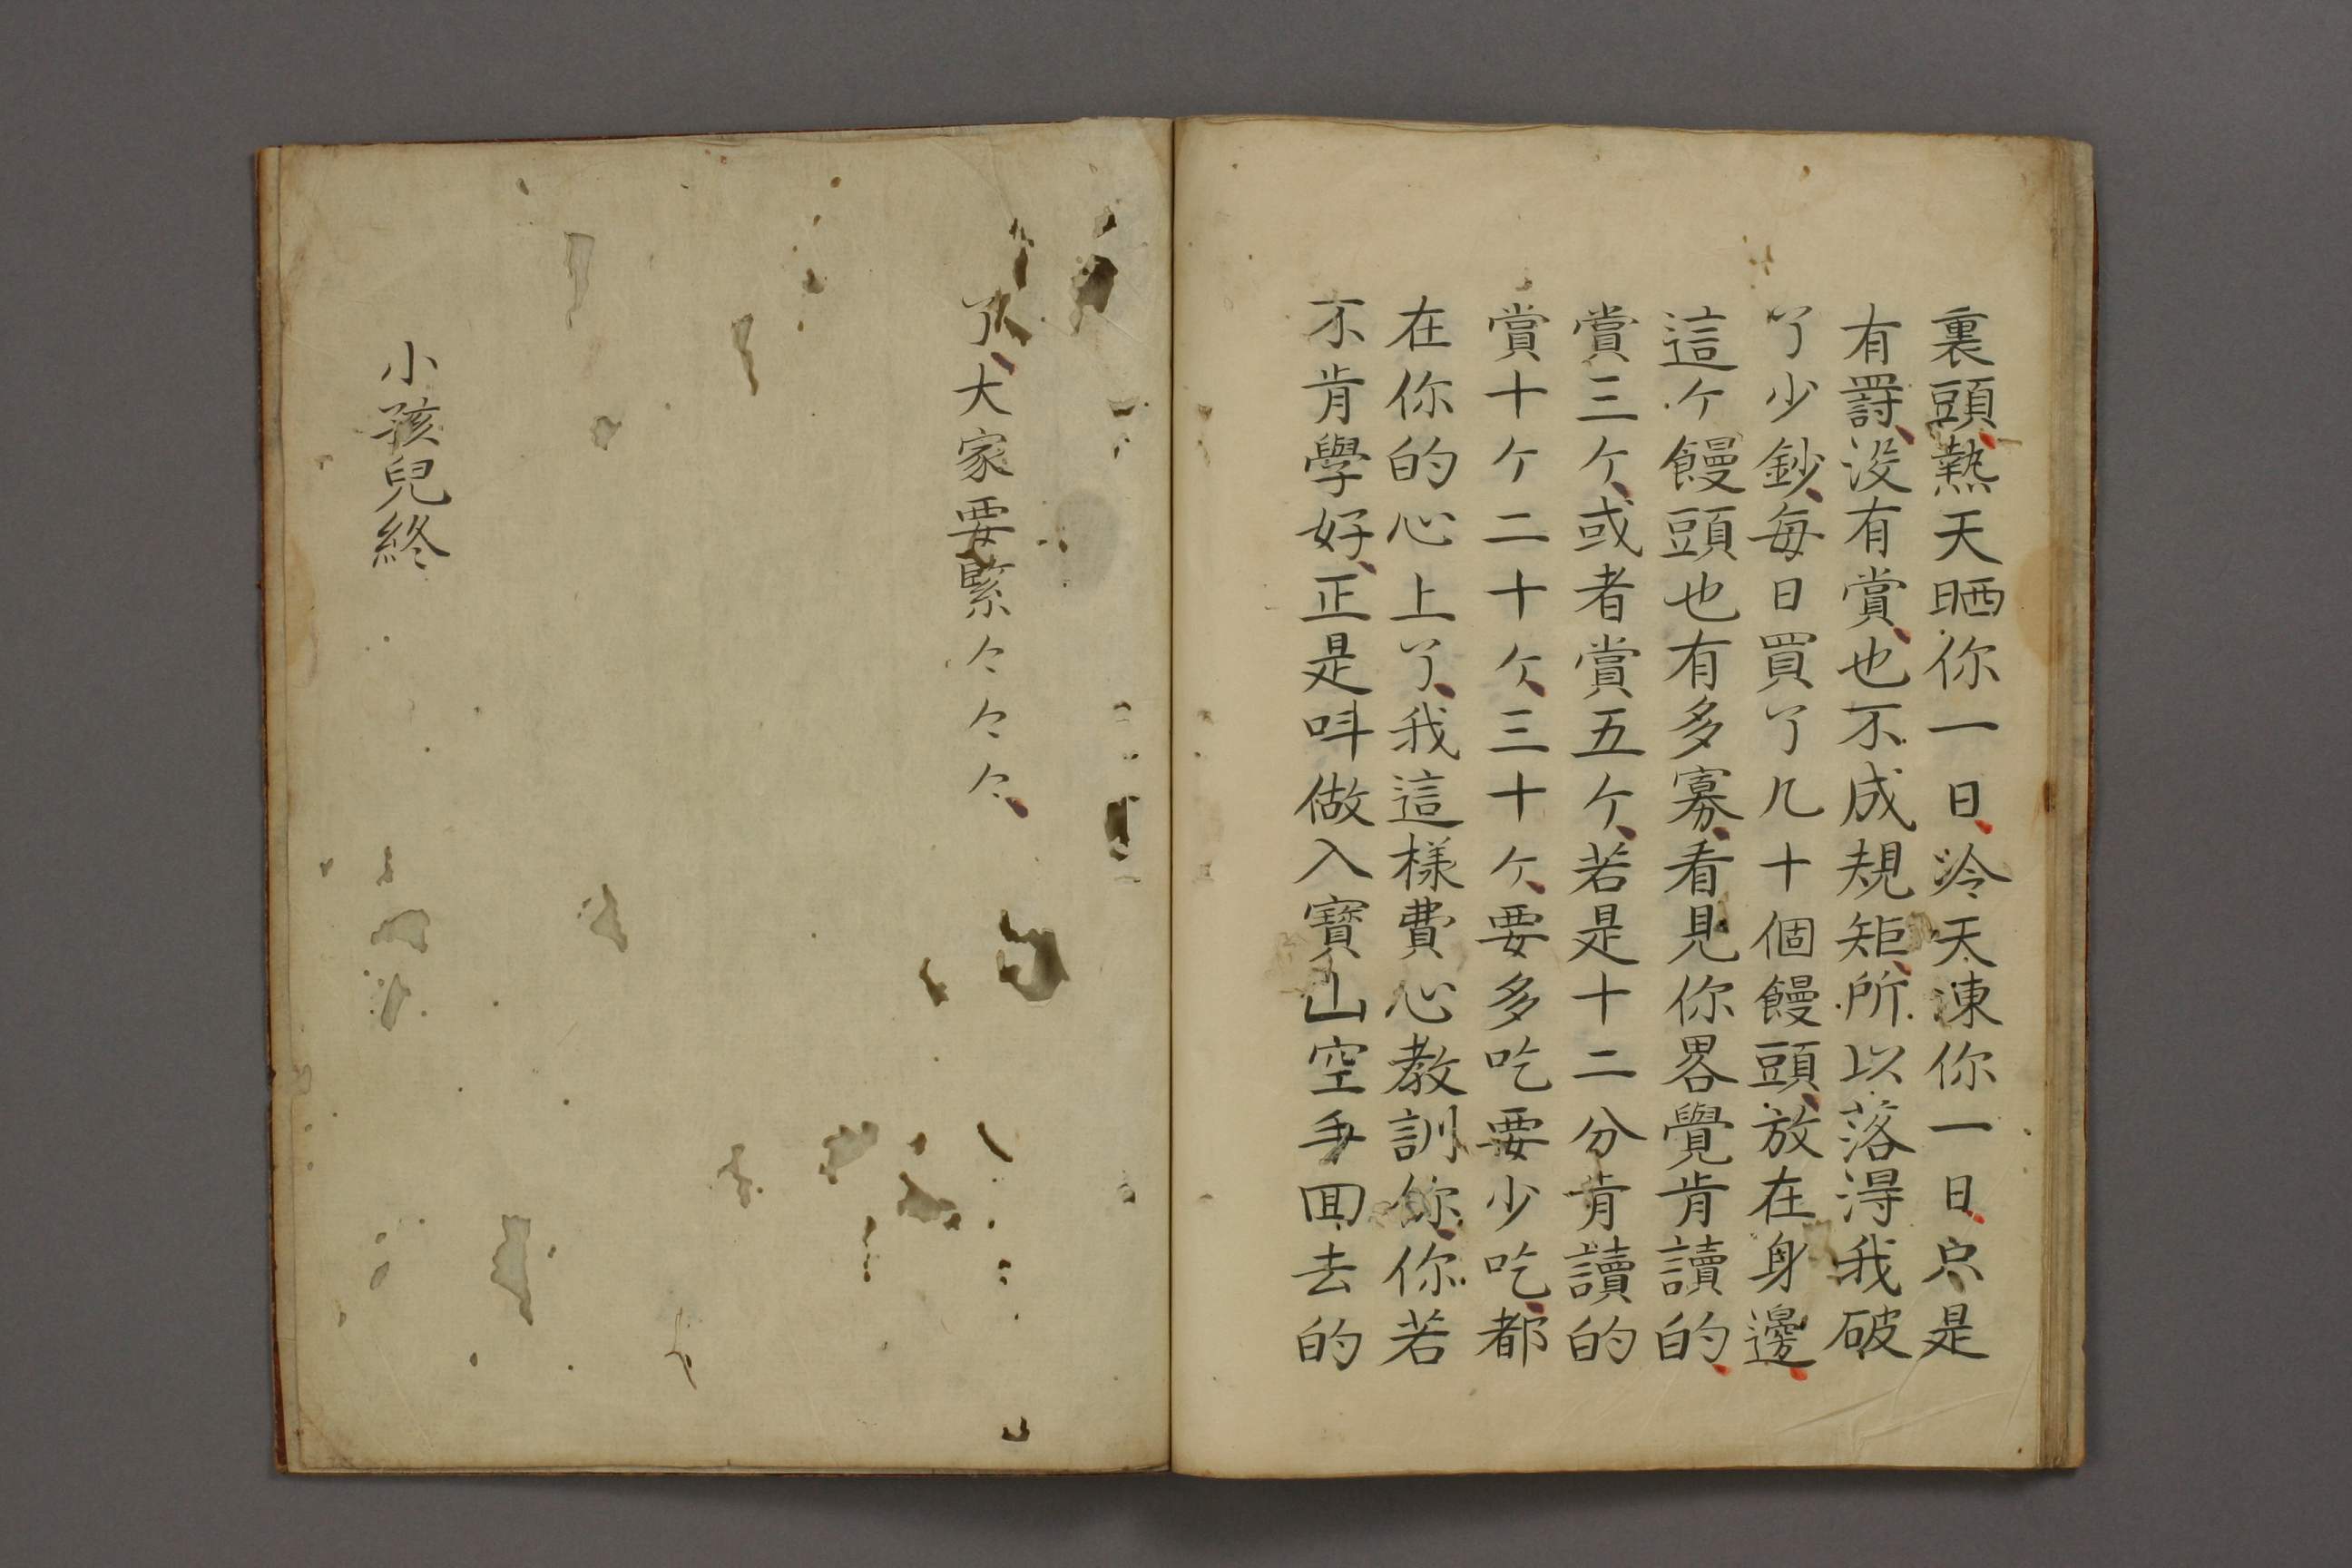 裏頭、熱天晒你一日、冷天凍你一日、只是
有罸、没有賞、也不成規矩、所以落淂我破
了少鈔、每日買了几十個饅頭、放在身邊、
這ケ饅頭也有多寡、看見你畧覺肯讀的、
賞三ケ、或者賞五ケ、若是十二分肯讀的
賞十ケ二十ケ、三十ケ、要多吃要少吃、都
在你的心上了、我這樣費心教訓你、你若
不肯學好、正是呌做入寶山空手囬去的
了、大家要緊々々々、
小孩兒終